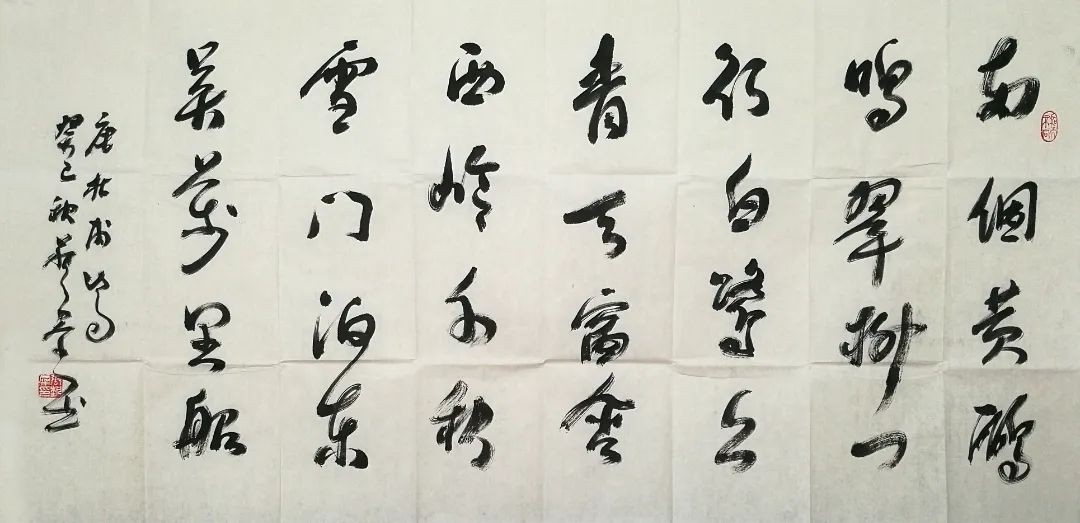 两個黄鹂
鸣翠柳一
行白鹭上
青天窗含
西岭千秋
雪门泊东
吴万里船
唐杜甫诗
癸巳秋书